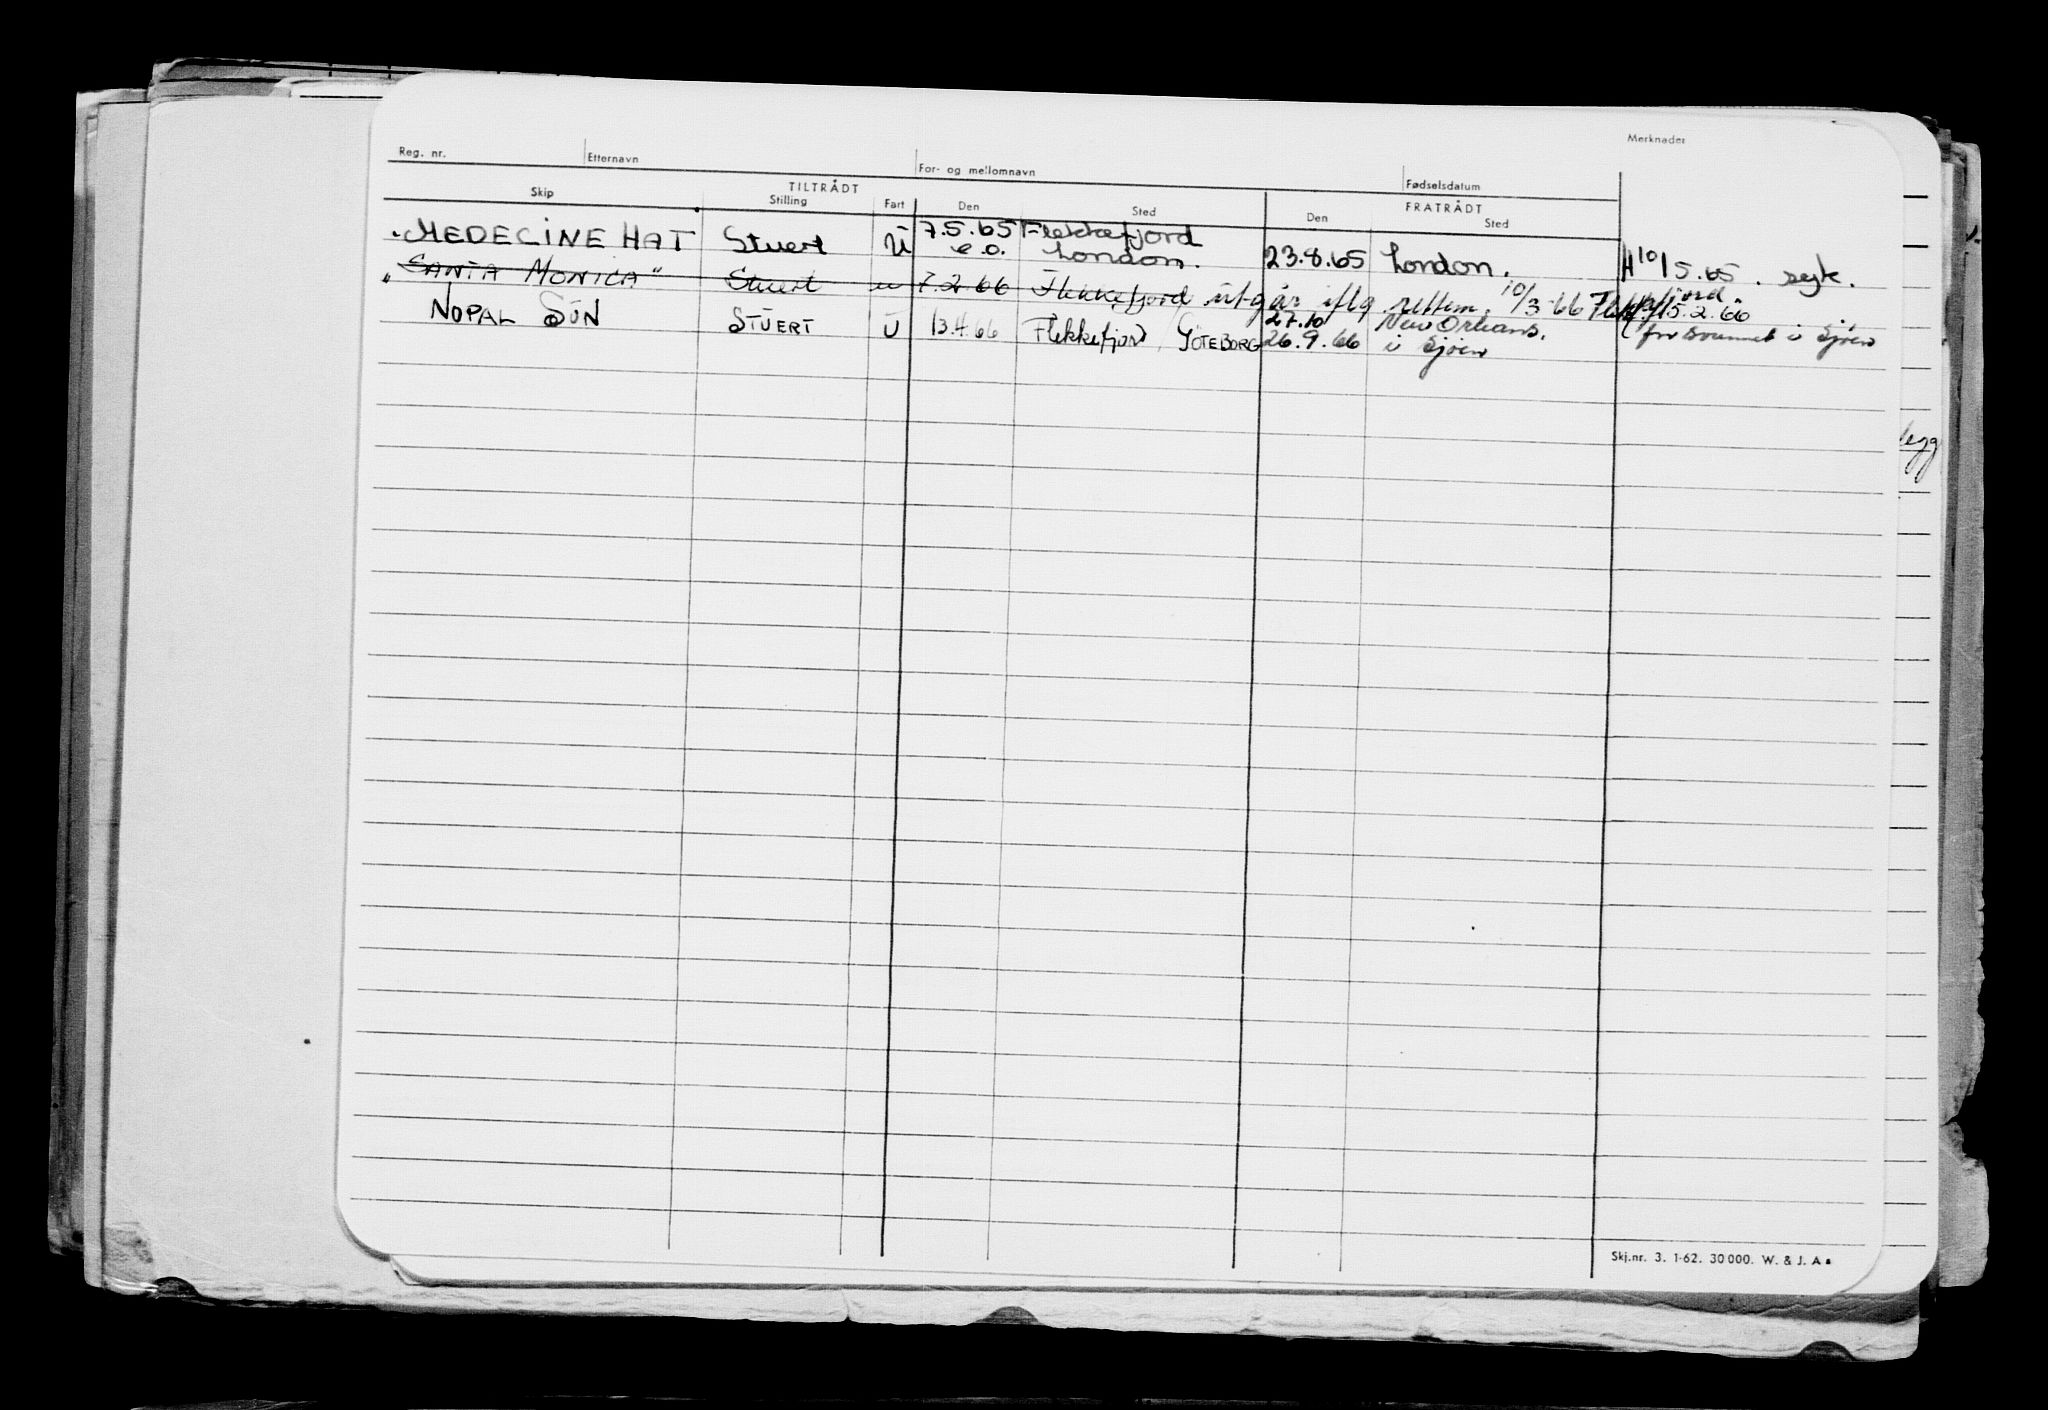 Merknader
Reg. nr. Etternavn For- og mellomnavn Fødselsdatum
TILTRÅDT FRATRÅDT
Skip Stilling Fart Den Sted Den Sted
MEDECINE HAT Stuert U 7.5.65 Flekkefjord
e.o. London. 23.8.65 London. 5.65. syk.
"SANTA MONICA" Stuert u 7.2.66 Flekkefjord utgår iflg. rettem. 10/3-66 Flekkefjord.
NOPAL SUN STUERT U 13.4.66 Flekkefjord / GÖTEBORG 27.10 New Orleans. 15.2.66
26.9.66 i Sjøen forsvunnet i Sjøen
legg
Skj.nr. 3. 1-62. 30 000. W. & J. A s